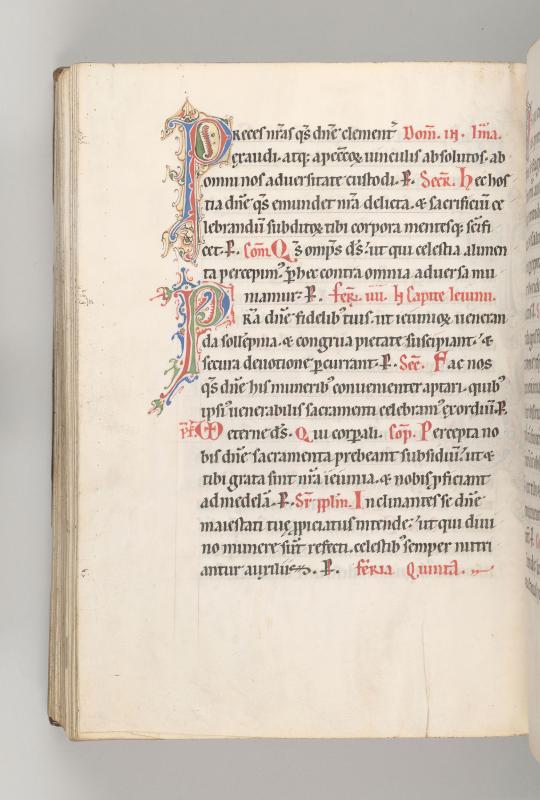 Preces nr̃as qs̃ dñe clement᷑ Dom̃. in. Lma.
exaudi. atq; a peccoꝝ uinculis absolutos. ab
omni nos aduersitate custodi. P. Secr̃. Hec hos
tia dñe qs̃ emundet nr̃a delicta. & sacrificiũ ce
lebrandũ subditoꝝ tibi corpora mentesq; sc̃ifi
cet. P. Com̃. Qs̃ omp̃s d̃s. ut qui celestia alimen
ta percepim᷒. p̱ hec contra omnia aduersa mu
niamur. P. fer̃. iiii. In Capite Ieiunii.
Pr̃a dñe fidelib᷒ tuis. ut ieiunioꝝ ueneran
da sollẽpnia. & congrua pietate suscipiant. &
secura deuotione p̱currant. P. Sec̃. Fac nos
qs̃ dñe his munerib᷒ conuenienter aptari. quib᷒
ipsi᷒ uenerabilis sacramenti celebram᷒ exordiũ. P.
pf̃ eterne d̃s. Qui corp̱ali. Co͞p. Percepta no
bis dñe sacramenta prebeant subsidiũ. ut &
tibi grata sint nr̃a ieiunia. & nobis ꝓficiant
ad medelã. P. Sr̃ pplm̃. Inclinantes se dñe
maiestati tuę ꝓpiciatus intende. ut qui diui
no munere sũt refecti. celestib᷒ semper nutri
antur auxiliis. P. feria Quinta.